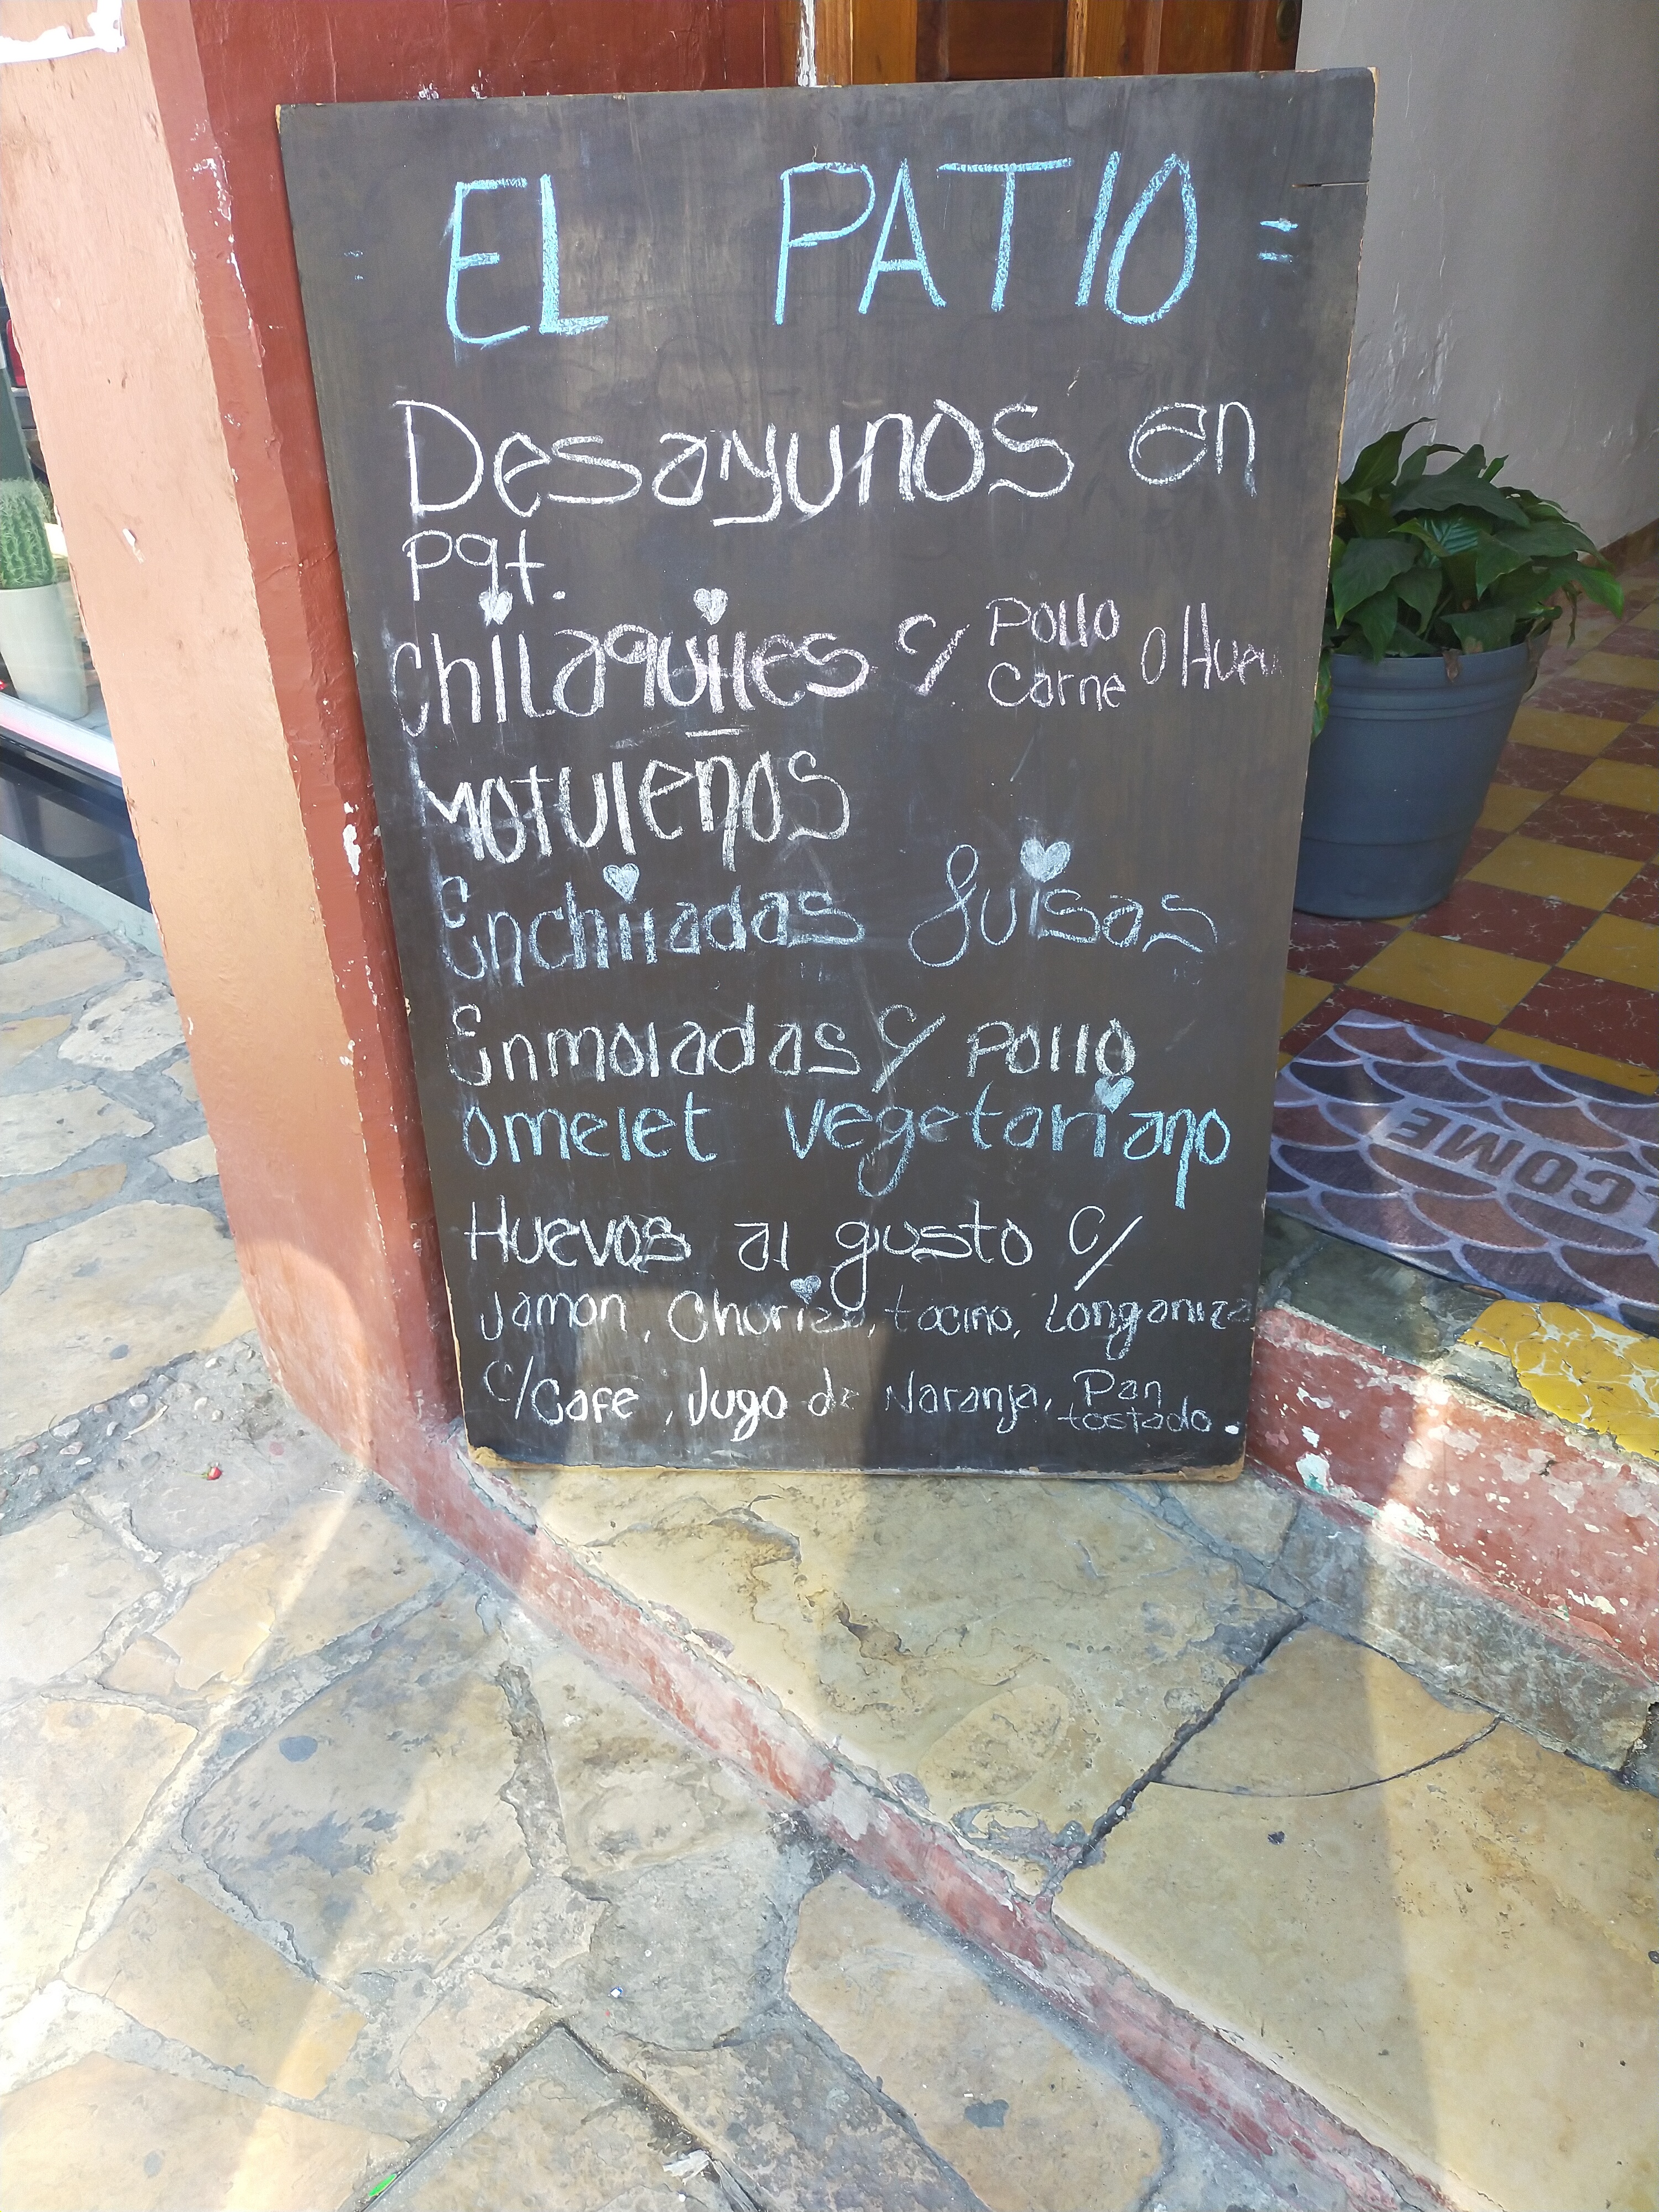 = EL PATIO =
Desayunos en
Pqt.
Chilaquiles c/ Pollo Carne o Huev
Motuleños
Enchiladas Suisas
Enmoladas c/ Pollo
Omelet vegetariano
Huevos al gusto c/
Jamon, Chorizo, tocino, Longaniza
C/Café, Jugo de Naranja, Pan tostado.
COME